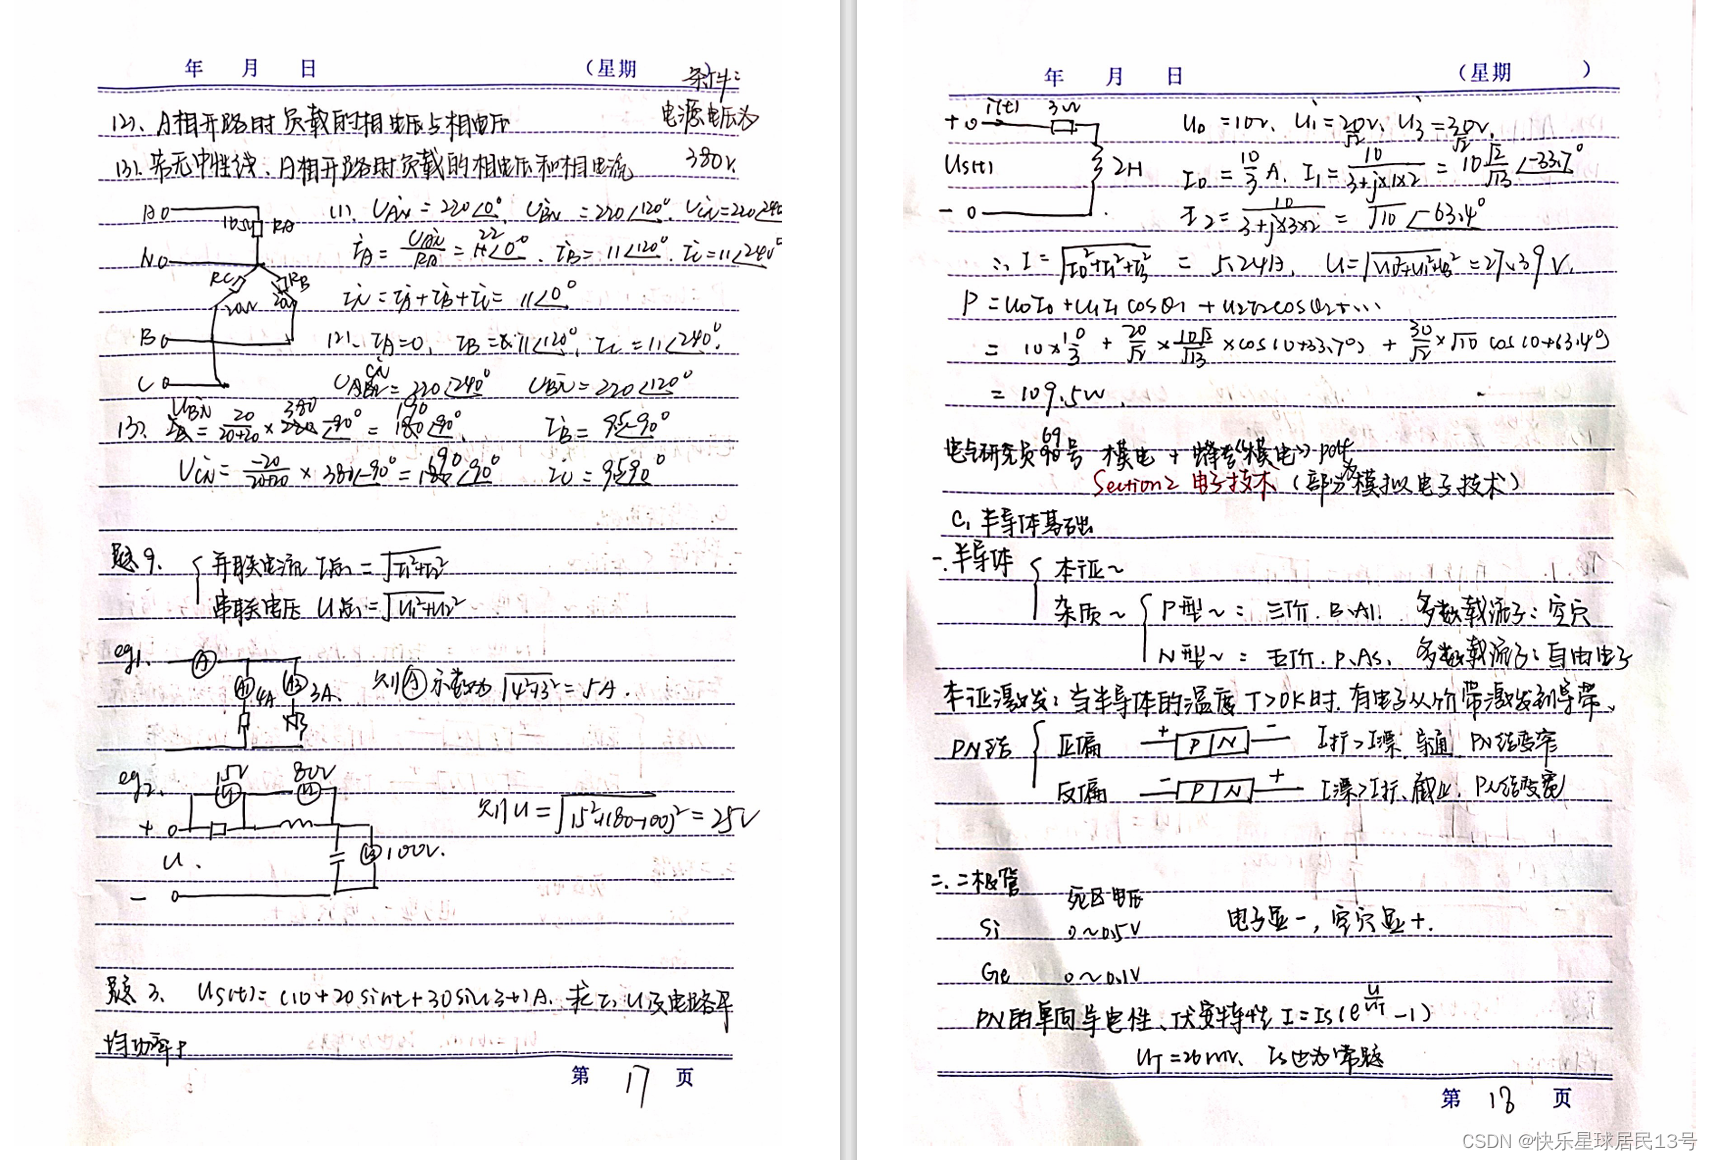 年 月 日 (星期
条件:
(2)、A相开路时负载的相电压与相电压
电源电压为
(3)、若无中性线、A相开路时负载的相电压和相电流
380V.
A
10Ω RA
N
RC RB
20Ω 20Ω
B
C
(1). UAN = 220∠0°, UBN = 220∠120°, UCN = 220∠240
IA = UAN/RA = 22∠0°. IB = 11∠120°. IC = 11∠240°
IN = IA + IB + IC = 11∠0°
(2). IA=0, IB = 11∠120°, IC = 11∠240°.
UCN = 220∠240° UBN = 220∠120°
(3). UBN = 20/20+20 × 380∠-90° = 190∠-90°, IB = 9.5∠-90°
UCN = -20/20+20 × 380∠-90° = 190∠90° IC = 9.5∠90°
题9. { 并联电流 I总 = √I1²+I2²
串联电压 U总 = √U1²+U2²
eg1. A
A1 4A A2 3A.
则 A 示数为 √4²+3² = 5A.
eg2. 15V 80V
+
U.
100V.
-
则 U = √15²+(80-100)² = 25V
题3. Us(t) = (10+20sint+30sin(3t)A. 求I, U及电路平
均功率P
第 17 页
年 月 日 (星期 )
+ i(t) 3Ω
Us(t) 2H
-
U0 = 10V, U1 = 20/√2 V, U3 = 30/√2 V.
I0 = 10/3 A. I1 = 10/3+j×1×2 = 10√2/√13 ∠-33.7°
I2 = 10/3+j×3×2 = √10∠-63.4°
∴ I = √I0²+I1²+I3² = 5.24A, U = √U0²+U1²+U3² = 27.39V.
P = U0I0 + U1I1cosθ1 + U2I2cosθ2+...
= 10×10/3 + 20/√2 × 10√2/√13 × cos(0+33.7°) + 30/√2 × √10 cos(0+63.4°)
= 109.5W.
电气研究员69号 模电 + 蜂考《模电》pdf
Section2 电子技术 (部分为模拟电子技术)
C1 半导体基础
一.半导体 { 本证~
杂质~ { P型~: 三价. B.Al. 多数载流子: 空穴
N型~: 五价. P.As. 多数载流子: 自由电子
本证激发: 当半导体的温度T>0K时. 有电子从价带激发到导带、
PN结 { 正偏 + P N - I扩>I漂. 导通. PN结变窄
反偏 - P N + I漂>I扩. 截止. PN结变宽
二.二极管 死区电压
Si 0~0.5V 电子显-, 空穴显+.
Ge 0~0.1V
PN的单向导电性、伏安特性 I=Is(e^U/UT -1)
UT=26mV.
第 18 页
CSDN @快乐星球居民13号